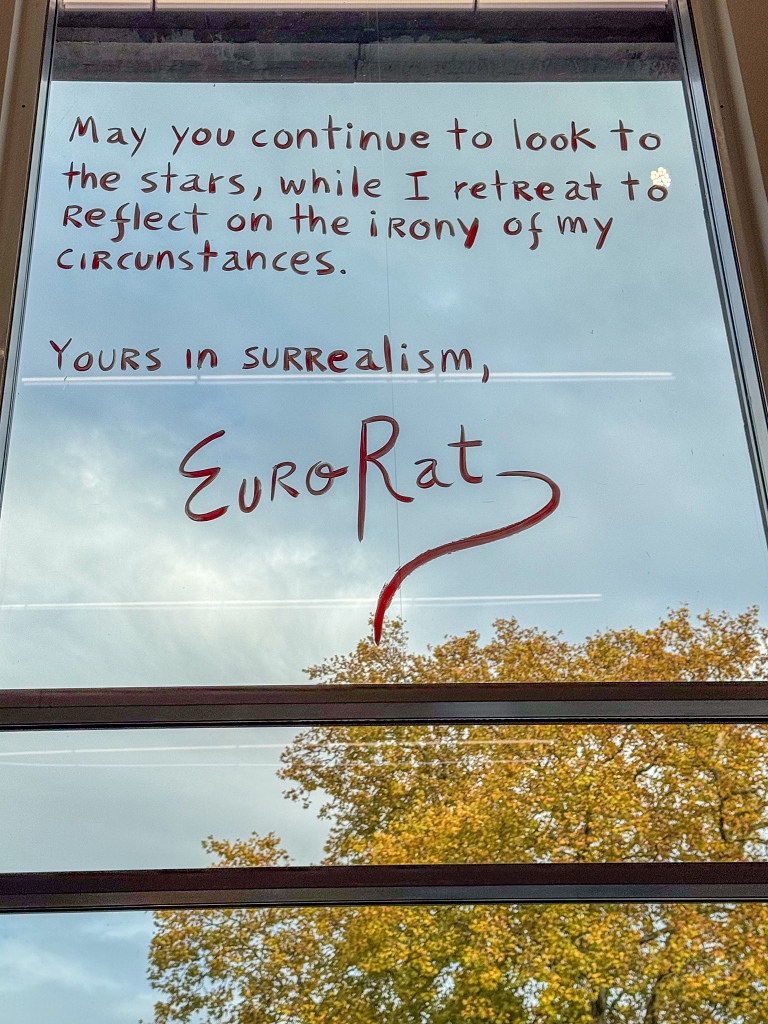 May you continue to look to
the stars, while I retreat to
Reflect on the irony of my
circumstances.
Yours in surrealism,
EuroRat